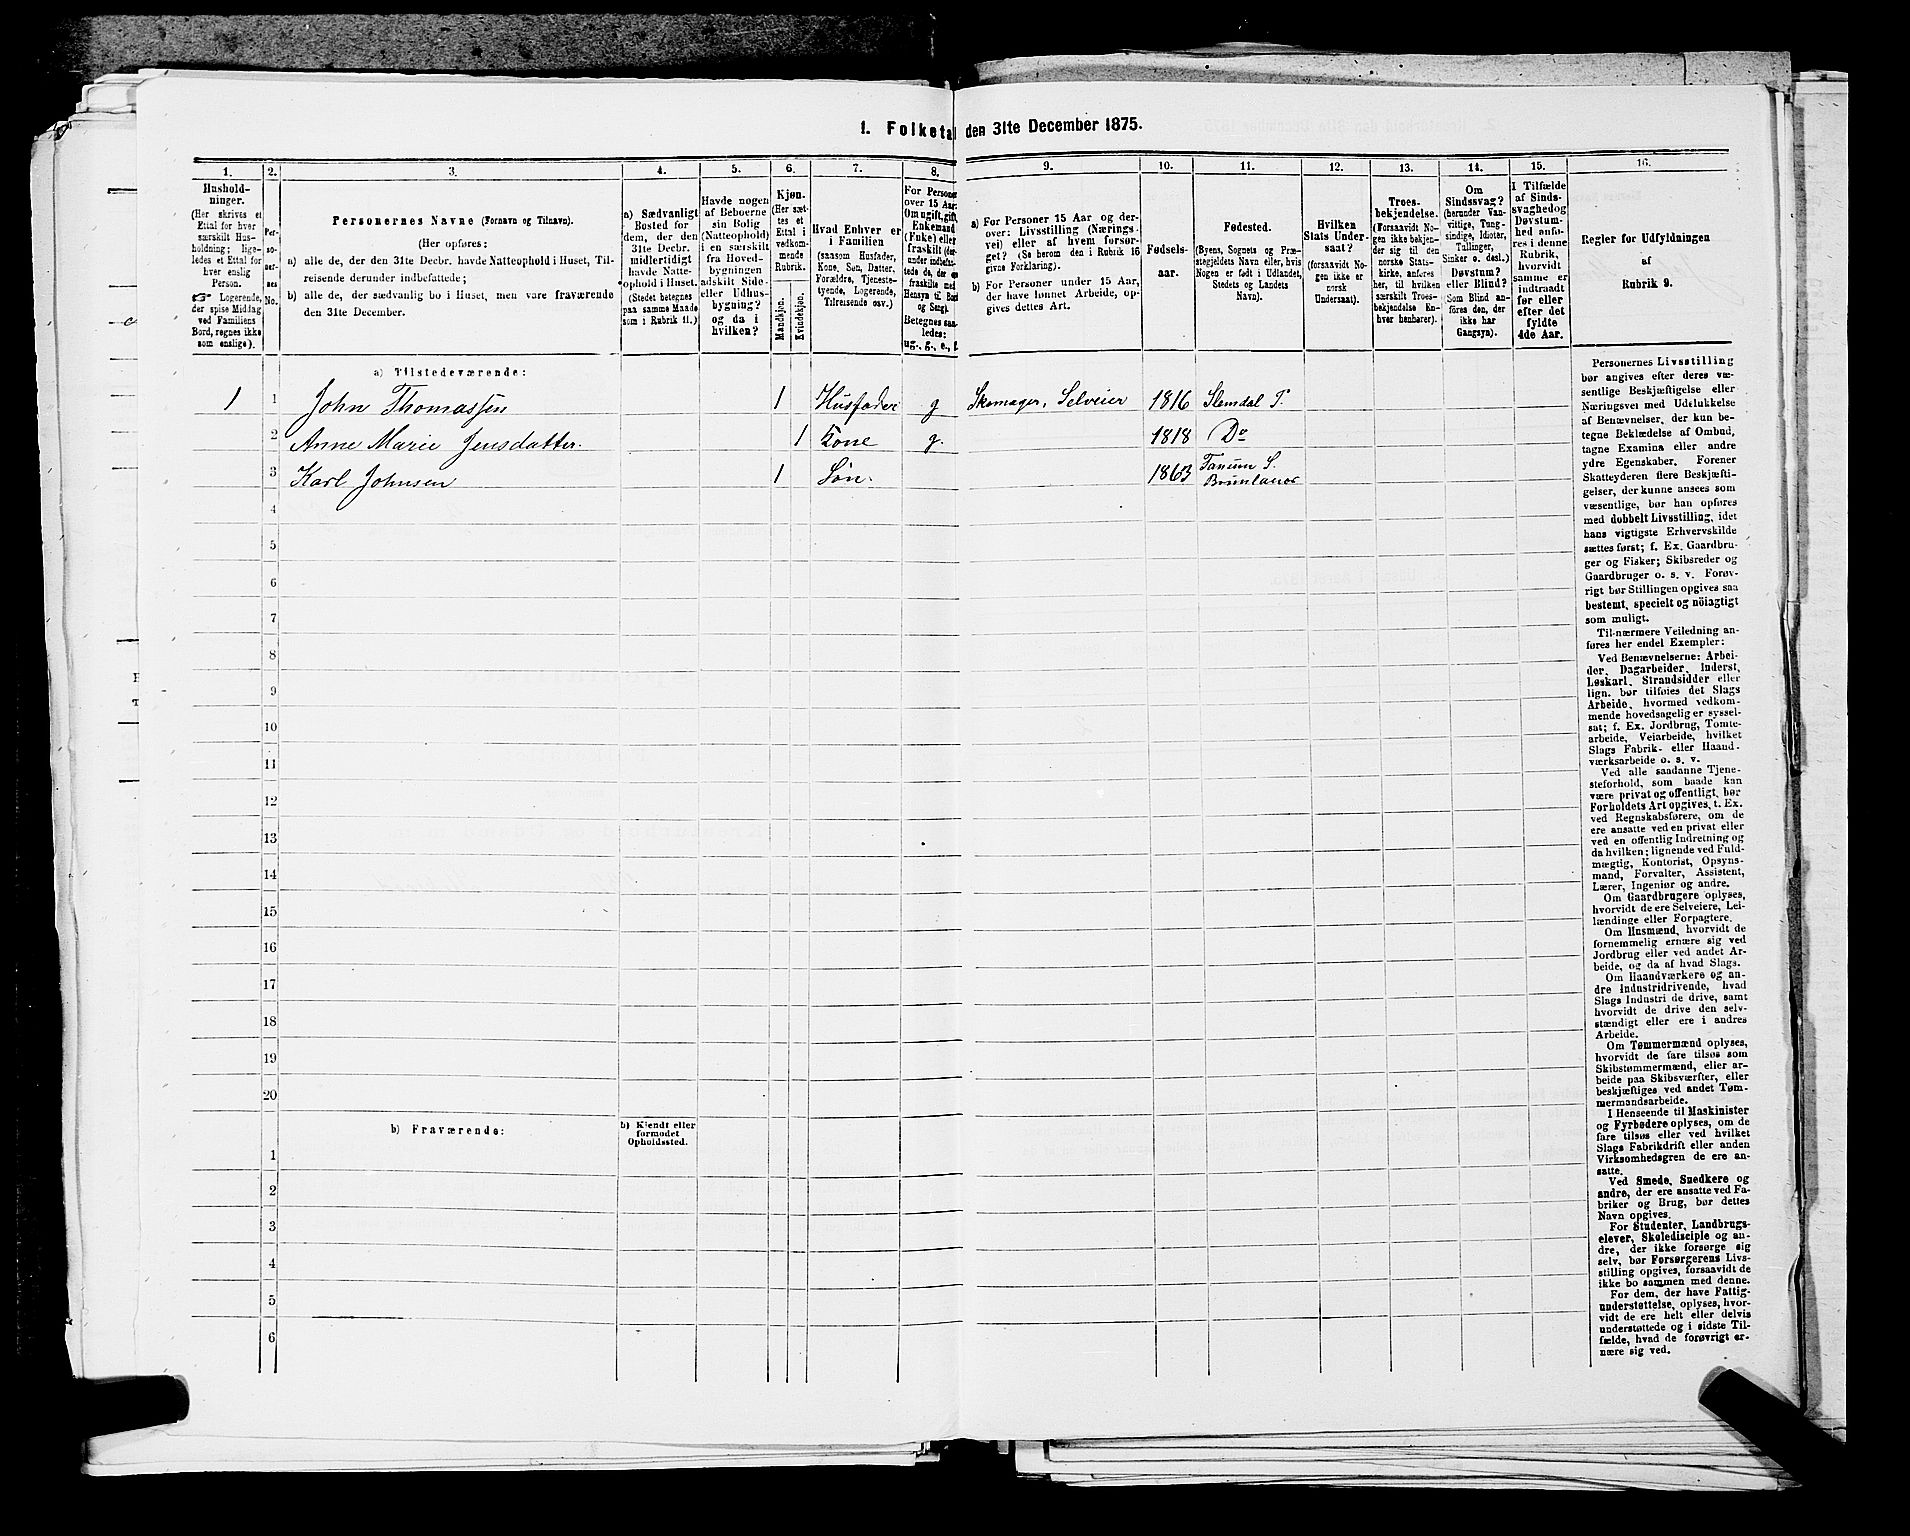 1. Folketa den 31te December 1875.
1. 2. 3. 4. 5. 6. 7. 8. 9. 10. 11. 12. 13. 14. 15. 16.
Hushold-
ninger.
(Her skrives et
Ettal for hver
særskilt Hus-
holdning; lige-
ledes et Ettal for
hver enslig
Person.
☞ Logerende,
der spise Middag
ved Familiens
Bord, regnes ikke
som enslige).
Per-
so-
ner-
nes
No.
Personernes Navne (Fornavn og Tilnavn).
(Her opføres:
a) alle de, der den 31te Decbr. havde Natteophold i Huset, Til-
reisende derunder indbefattede;
b) alle de, der sædvanlig bo i Huset, men vare fraværende
den 31te December.
a) Sædvanligt
Bosted for
dem, der den
31te Decbr.
midlertidigt
havde Natte-
ophold i Huset.
(Stedet betegnes
paa samme Maade
som i Rubrik 11.)
Havde nogen
af Beboerne
sin Bolig
(Natteophold)
i en særskilt
fra Hoved-
bygningen
adskilt Side-
eller Udhus-
bygning?
og da i
hvilken?
Kjøn.
(Her sæt-
tes et
Ettal i
vedkom-
mende
Rubrik.
Mandkjøn.
Kvindekjøn.
Hvad Enhver er
i Familien
(saasom Husfader,
Kone, Søn, Datter,
Forældre, Tjeneste-
tyende, Logerende,
Tilreisende osv.)
For Personer
over 15 Aar:
Om ugift, gift,
Enkemand
(Enke) eller
fraskilt (der-
under indbefat-
tede de, der ere
fraskilte med
Hensyn til Bord
og Seng).
Betegnes saa-
ledes:
ug., g., e., f.
a) For Personer 15 Aar og der-
over: Livsstilling (Nærings-
vei) eller af hvem forsør-
get? (Se herom den i Rubrik 16
givne Forklaring).
b) For Personer under 15 Aar,
der have lønnet Arbeide, op-
gives dettes Art.
Fødsels-
aar.
Fødested.
(Byens, Sognets og Præ-
stegjeldets Navn eller, hvis
Nogen er født i Udlandet,
Stedets og Landets
Navn).
Hvilken
Stats Under-
saat?
(forsaavidt No-
gen ikke er
norsk
Undersaat).
Troes-
bekjendelse.
(Forsaavidt No-
gen ikke bekjen-
der sig til den
norske Stats-
kirke, anføres
her, til hvilken
særskilt Troes-
bekjendelse En-
hver henhører).
Om
Sindssvag?
(herunder Van-
vittige, Tung-
sindige, Idioter,
Tullinger,
Sinker o. desl.)
Døvstum?
eller Blind?
(Som Blind an-
føres den, der
ikke har
Gangsyn).
I Tilfælde
af Sinds-
svaghed og
Døvstum-
hed anfø-
res i denne
Rubrik,
hvorvidt
samme er
indtraadt
før eller
efter det
fyldte
4de Aar.
Regler for Udfyldningen
af
Rubrik 9.
a) Tilstedeværende:
1 1 John Thomassen 1 Husfader g Skomager, Selveier 1816 Slemdal P.
2 Anne Marie Jensdatter. 1 Kone g. 1818 Do
3 Karl Johnsen 1 Søn. 1863 Tanum S.
Brunlanes
4
5
6
7
8
9
10
11
12
13
14
15
16
17
18
19
20
b) Fraværende:
b) Kjendt eller
formodet
Opholdssted.
1
2
3
4
5
6
Personernes Livsstilling
bør angives efter deres væ-
sentlige Beskjæftigelse eller
Næringsvei med Udelukkelse
af Benævnelser, der kun be-
tegne Beklædelse af Ombud,
tagne Examina eller andre
ydre Egenskaber. Forener
Skatteyderen flere Beskjæfti-
gelser, der kunne ansees som
væsentlige, bør han opføres
med dobbelt Livsstilling, idet
hans vigtigste Erhvervskilde
sættes først; f. Ex. Gaardbru-
ger og Fisker; Skibsreder og
Gaardbruger o. s. v. Forøv-
rigt bør Stillingen opgives saa
bestemt, specielt og nöiagtigt
som muligt.
Til nærmere Veiledning an-
føres her endel Exempler:
Ved Benævnelserne: Arbei-
der, Dagarbeider, Inderst,
Løskarl, Strandsidder eller
lign. bør tilføies det Slags
Arbeide, hvormed vedkom-
mende hovedsagelig er syssel-
sat; f. Ex. Jordbrug, Tomte-
arbeide, Veiarbeide, hvilket
Slags Fabrik- eller Haand-
værksarbeide o. s. v.
Ved alle saadanne Tjene-
steforhold, som baade kan
være privat og offentligt, bør
Forholdets Art opgives, t. Ex.
ved Regnskabsførere, om de
ere ansatte ved en privat eller
ved en offentlig Indretning og
da hvilken; lignende ved Fuld-
mægtig, Kontorist, Opsyns-
mand, Forvalter, Assistent,
Lærer, Ingeniør og andre.
Om Gaardbrugere oplyses,
hvorvidt de ere Selveiere, Lei-
lændinge eller Forpagtere.
Om Husmænd, hvorvidt de
fornemmelig ernære sig ved
Jordbrug eller ved andet Ar-
beide, og da af hvad Slags.
Om Haandværkere og an-
dre Industridrivende, hvad
Slags Industri de drive, samt
hvorvidt de drive den selv-
stændigt eller ere i andres
Arbeide.
Om Tømmermænd oplyses,
hvorvidt de fare tilsøs som
Skibstømmermænd, eller ar-
beide paa Skibsværfter, eller
beskjæftiges ved andet Tøm-
mermandsarbeide.
I Henseende til Maskinister
og Fyrbødere oplyses, om de
fare tilsøs eller ved hvilket
Slags Fabrikdrift eller anden
Virksomhedsgren de ere an-
satte.
Ved Smede, Snedkere og
andre, der ere ansatte ved Fa-
briker og Brug, bør dettes
Navn opgives.
For Studenter, Landbrugs-
elever, Skoledisciple og an-
dre, der ikke forsørge sig
selv, bør Forsørgerens Livs-
stilling opgives, forsaavidt de
ikke bo sammen med denne.
For dem, der have Fattig-
understøttelse, oplyses, hvor-
vidt de ere helt eller delvis
understøttede og i sidste Til-
fælde, hvad de forøvrigt er-
nære sig ved.